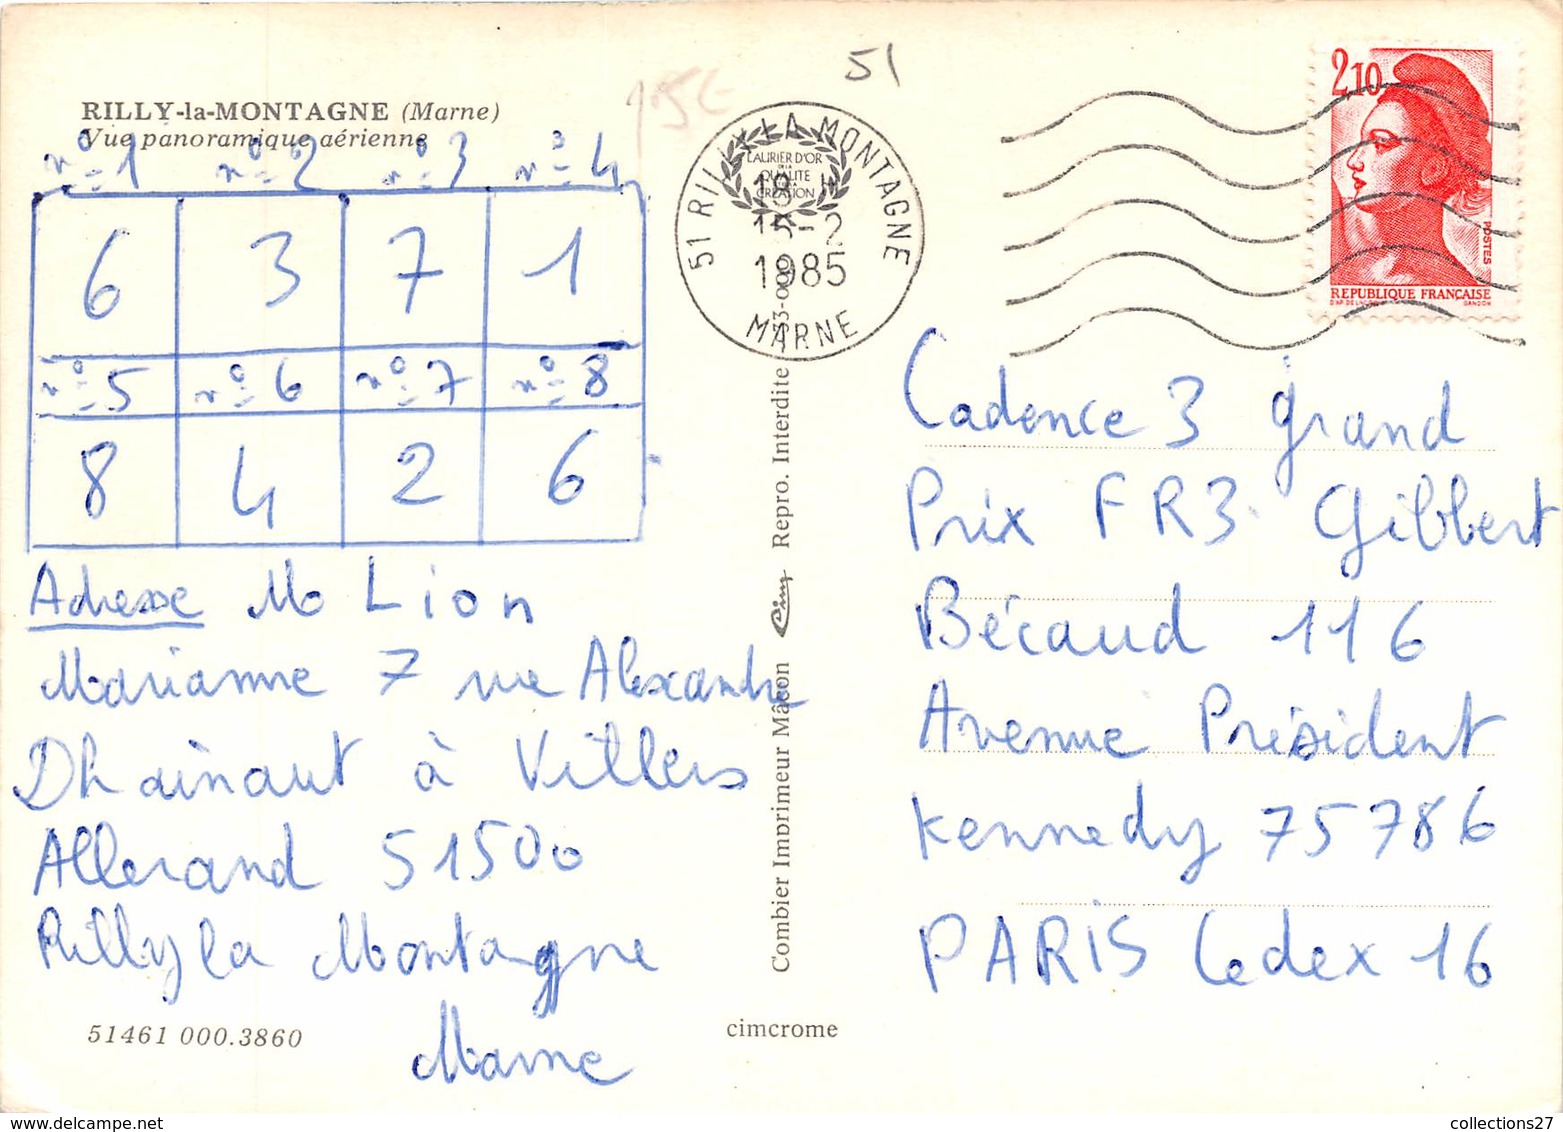 RILLY-la-MONTAGNE (Marne)
Vue panoramique aérienne
nº1 nº2 nº3 nº4
6 3 7 1
nº5 nº6 nº7 nº8
8 4 2 6
Adresse Me Lion
Marianne 7 rue Alexandre
Dhainaut à Villers
Allerand 51500
Rilly la Montagne
Marne
51461 000.3860
Combier Imprimeur Mâcon Cim Repro. Interdite
cimcrome
LAURIER D'OR
DE LA
QUALITE
CREATION
51
51 RILLY LA MONTAGNE
15-2
1985
MARNE
2,10
POSTES
REPUBLIQUE FRANÇAISE
GANDON
Cadence 3 grand
Prix FR3 Gibbert
Bécaud 116
Avenue Président
Kennedy 75786
PARIS Cedex 16
collections27